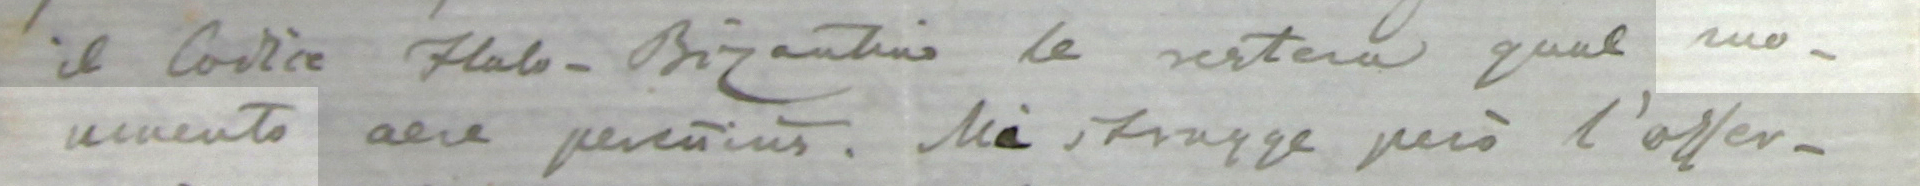 il Codice Italo-Bizantino le resterà qual mo-
numento aere perennius. Mi strugge però l'osser-